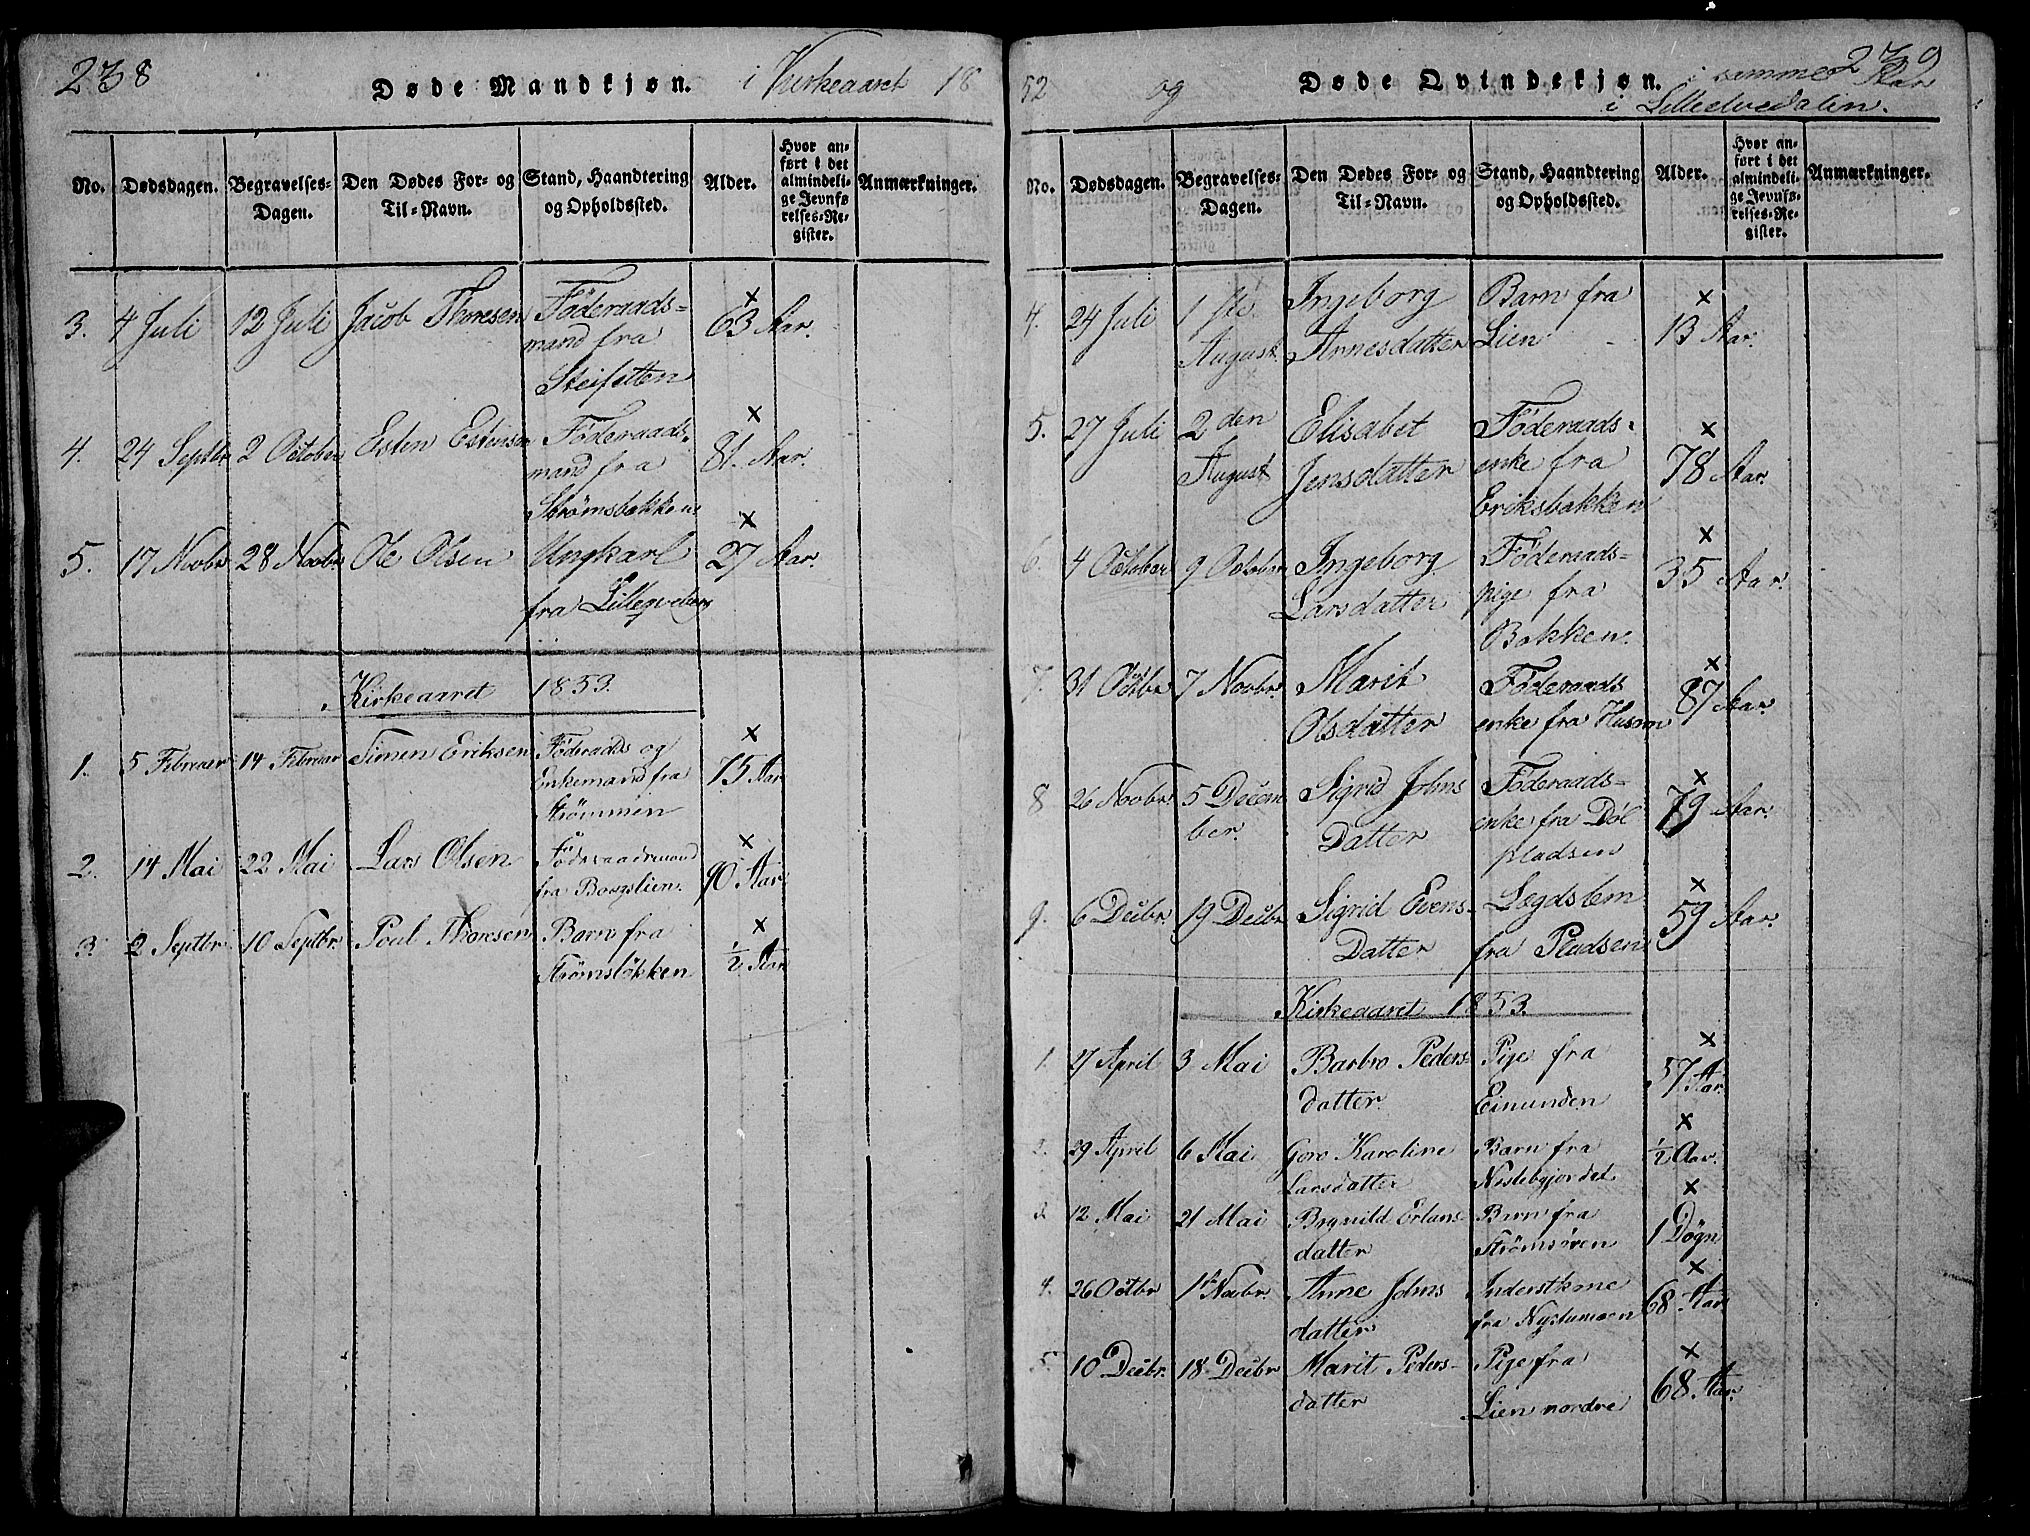 238
Døde Mandkjøn. i Kirkeaaret 18
No.
Dødsdagen.
Begravelses-
Dagen.
Den Dødes For- og
Til-Navn.
Stand, Haandtering
og Opholdssted.
Alder.
Hvor an-
ført i det
almindeli-
ge Jevnfø-
relses-Re-
gister.
Anmærkninger.
3. 4 Juli 12 Juli Jacob Thoresen Föderaads- 63 Aar.
mand fra
Steifetten
4. 24 Septbr 2 October Esten Estensen Föderaads- 81. Aar.
mand fra
Strömsbakken
5. 17 Novbr 28 Novbr Ole Olsen Ungkarl 27 Aar.
fra Lillegveberg
Kirkeaaret 1853.
1. 5 Februar 14 Februar Simen Eriksen Föderaads og 75 Aar
Enkemand fra
Strömmen
2. 14 Mai 22 Mai Lars Olsen Föderaadsmand 90 Aar.
fra Borgslien.
3. 2 Septbr. 10 Septbr. Poul Thoresen Barn fra 1/2 Aar
Strömslökken
239
52 og Døde Qvindekjøn. i samme Aar
i Lilleelvedalen.
No.
Dødsdagen.
Begravelses-
Dagen.
Den Dødes For- og
Til-Navn.
Stand, Haandtering
og Opholdssted.
Alder.
Hvor an-
ført i det
almindeli-
ge Jevnfø-
relses-Re-
gister.
Anmærkninger.
4. 24 Juli 1ste Ingeborg Barn fra 13 Aar.
August. Arnesdatter Lien
5. 27 Juli 2den Elisabet Föderaads- 78 Aar.
August Jensdatter enke fra
Eriksbakken
6. 4 October 9 October Ingeborg Föderaads- 35 Aar.
Larsdatter pige fra
Bakken.
7. 31 Octbr 7 Novbr. Marit Föderaads 87 Aar.
Olsdatter enke fra Husom
8 26 Novbr. 5 Decem Sigrid Johns Föderaads- 79 Aar.
ber. Datter enke fra Döl
pladsen
9. 6 Decbr. 19 Decbr. Sigrid Evens- Lægdslem 59 Aar.
Datter fra Pladsen
Kirkeaaret 1853.
1. 27 April 3 Mai Barbro Peders- Pige fra 57 Aar.
datter. Einunden
2. 29 April 6 Mai Goro Karoline Barn fra 1/2 Aar.
Larsdatter Nestebyjordet
3 12 Mai 21 Mai Brynild Erlans- Barn fra 1 Døgn
datter Strömsören
4. 26 Octbr 1ste Novbr. Anne Johns Inderstkone 68 Aar
datter fra Nystumoen
5. 10 Decbr. 18 Decbr Marit Peders- Pige fra 68 Aar.
datter Lien nordre